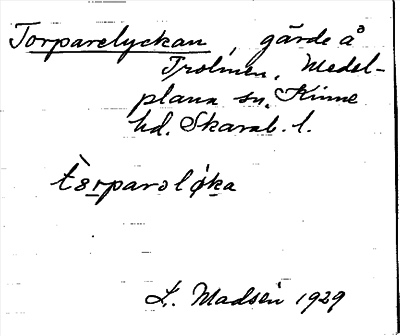 Torparelyckan, gärde å
Trolmen, Medel-
plana sn, Kinne
hd. Skarab. l.
tɛ̀rparəlo̗ka
L. Madsén 1929